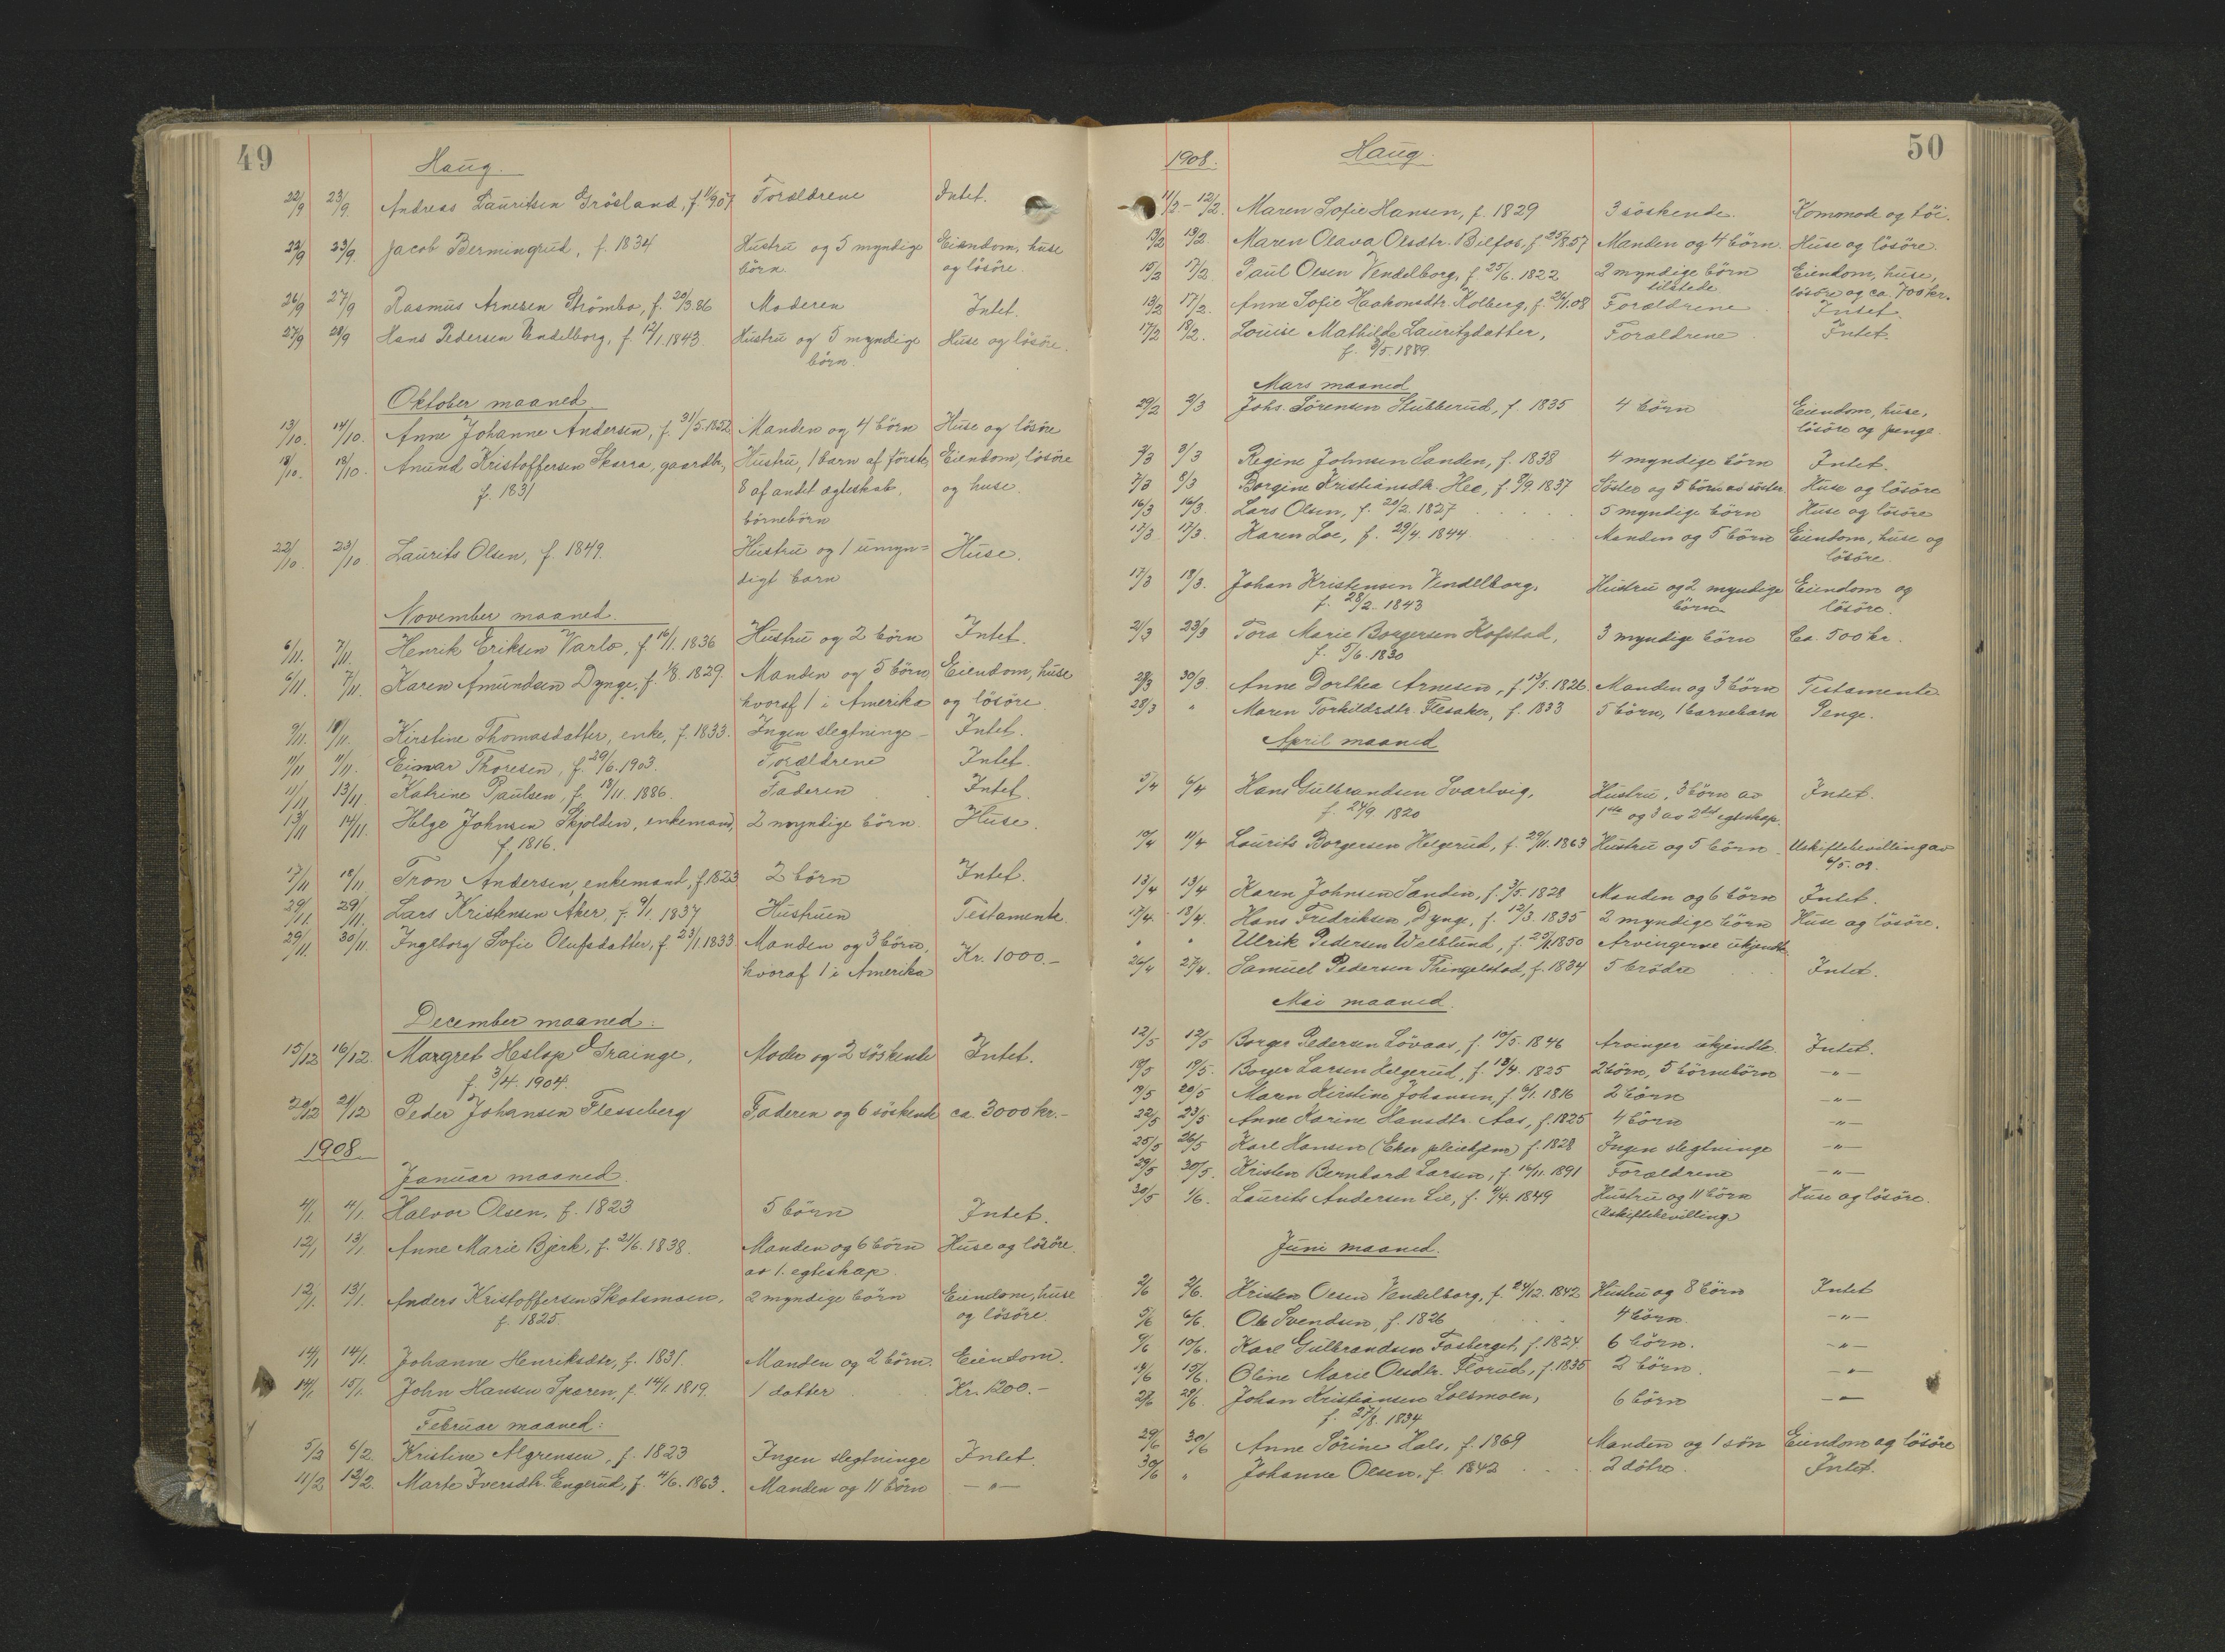 49
Haug.
22/9 23/9. Andreas Lauritsen Grösland, f. 1/9 07 Forældrene Intet.
22/9 23/9. Jacob Bermingrud, f. 1834 Hustru og 5 myndige Eiendom, huse
börn. og lösöre.
26/9 27/9 Rasmus Arnesen Strömbo, f. 20/3.86 Moderen Intet.
27/9 28/9 Hans Pedersen Vendelborg, f. 12/1.1843. Hustru og 5 myndige Huse og lösöre.
börn.
Oktober maaned
13/10. 14/10. Anne Johanne Andersen, f. 31/5.1852 Manden og 4 börn Huse og lösöre
18/10. 18/10. Amund Kristoffersen Skarra, gaardbr., Hustru, 1 barn af förste, Eiendom, lösöre
f. 1831 8 af andet ægteskab, og huse.
börnebörn
22/10. 23/10 Laurits Olsen, f. 1849. Hustru og 1 umyn= Huse.
digt barn
November maaned.
6/11. 7/11. Henrik Eriksen Varlo, f. 16/1.1836 Hustru og 2 börn Intet.
6/11 7/11. Karen Amundsen Dynge, f. 1/8.1829. Manden og 5 börn, Eiendom, huse
hvoraf 1 i Amerika og lösöre.
9/11. 10/11. Kirstine Thomasdatter, enke, f. 1833. Ingen slegtninge – Intet.
11/11 11/11. Einar Thoresen, f. 29/6.1903. Forældrene Intet.
11/11 13/11. Katrine Paulsen, f. 18/11.1886. Faderen Intet.
13/11 14/11. Helge Johnsen Skjolden, enkemand, 2 myndige börn. Huse.
f. 1816.
17/11 18/11 Tron Andersen, enkemand, f. 1823 2 börn Intet.
29/11. 29/11. Lars Kristensen Aker, f. 9/1.1837 Hustruen Testamente.
29/11. 30/11. Ingeborg Sofie Olufsdatter, f. 23/1.1833. Manden og 3 börn, Kr. 1000.–
hvoraf 1 i Amerika
December maaned:
15/12 16/12. Margret Heslop Grainge, Moder og 2 söskende Intet.
f. 3/4.1904.
20/12 21/12 Peder Johansen Flesseberg Faderen og 6 söskende ca. 3000 kr.–
1908
Januar maaned.
4/1. 4/1. Halvor Olsen, f. 1823 5 börn Intet.
12/1 13/1. Anne Marie Bjerk, f. 21/6.1838. Manden og 6 börn Huse og lösöre.
av 1. egteskap.
12/1. 13/1. Anders Kristoffersen Skotsmoen, 2 myndige börn Eiendom, huse
f. 1825. og lösöre.
14/1 14/1. Johanne Henriksdtr, f. 1831. Manden og 2 börn. Eiendom.
14/1 15/1. John Hansen Sporen, f. 14/1 1819. 1 datter Kr. 1200.–
Februar maaned:
5/2 6/2. Kristine Algrensen, f. 1823 Ingen slegtninge Intet.
11/2 12/2. Marte Iversdtr. Engerud, f. 4/6.1863. Manden og 11 börn – " –
50
1908. Haug.
11/2 – 12/2. Maren Sofie Hansen, f. 1829 3 söskende. Kommode og töi.
13/2 19/2. Maren Olava Olsdtr. Bilfos, f. 25/8.57 Manden og 4 börn. Huse og lösöre.
15/2 17/2. Paul Olsen Vendelborg, f. 25/6.1822 2 myndige börn Eiendom, huse,
tilstede lösöre og ca. 700 kr.
13/2 17/2. Anne Sofie Haakonsdtr. Kolberg, f. 24/1.08 Forældrene Intet.
17/2 18/2. Louise Mathilde Lauritzdatter, Forældrene. Intet.
f. 9/5.1889.
Mars maaned
29/2 2/3 Johs. Sörensen Stubberud, f. 1835 4 börn Eiendom, huse,
lösöre og penge.
3/3 3/3 Regine Johnsen Sanden, f. 1838 4 myndige börn Intet.
7/3 8/3 Borgine Kristiansdtr. Hee, f. 8/9 1837 Söster og 5 börn av söster Huse og lösöre
16/3 16/3. Lars Olsen, f. 20/2.1827 5 myndige börn Huse og lösöre
17/3 17/3. Karen Loe, f. 29/4.1844 Manden og 5 börn Eiendom, huse og
lösöre.
17/3 18/3. Johan Kristensen Vendelborg, Hustru og 2 myndige Eiendom og
f. 28/2.1843 börn lösöre.
21/3 23/3 Tora Marie Borgersen Hofstad, 3 myndige börn Ca. 500 kr.
f. 5/6.1830
28/3 30/3. Anne Dorthea Arnesen, f. 13/5.1826. Manden og 3 börn Testamente
28/3 " Maren Torkildsdtr. Flesaker, f. 1833 5 börn, 1 barnebarn Penge.
April maaned
5/4 6/4 Hans Gulbrandsen Svartvig, Hustru, 3 börn av Intet.
f. 24/9.1820 1ste og 3 av 2det egteskap.
10/4 11/4 Laurits Borgersen Helgerud, f. 29/11.1863 Hustru og 5 börn. Uskiftebevilling av
6/5.08.
13/4 13/4 Karen Johnsen Sanden, f. 3/5.1828 Manden og 6 börn Intet.
17/4. 18/4. Hans Fredriksen Dynge, f. 12/3.1835 2 myndige börn Huse og lösöre.
" " Ulrik Pedersen Welblund, f. 25/1.1850 Arvingerne ukjendte
26/4 27/4. Samuel Pedersen Thingelstad, f. 1834 5 brödre Intet.
Mai maaned.
12/5 12/5 Borger Pedersen Lövaas, f. 10/5.1846 Arvinger ukjendte. Intet.
19/5 19/5. Borger Larsen Helgerud, f. 18/4.1825 2 börn, 5 börnebörn – " –
19/5 20/5 Maren Kirstine Johansen, f. 6/1.1816 2 börn – " –
22/5 23/5 Anne Karine Hansdtr. Aas, f. 1825 4 börn – " –
25/5 26/5 Karl Hansen (Eker pleiehjem) f. 1828 Ingen slegtninge – " –
29/5 30/5. Kristen Bernhard Larsen, f. 16/11.1891 Forældrene – " –
30/5 1/6. Laurits Andersen Lie, f. 4/4.1849 Hustru og 11 börn Huse og lösöre.
(Uskiftebevilling)
Juni maaned.
2/6 2/6. Kristen Olsen Vendelborg, f. 24/12.1842 Hustru og 8 börn Intet
5/6 6/6. Ole Svendsen, f. 1826 4 börn. – " –
9/6 10/6. Karl Gulbrandsen Fosberget, f. 1824 6 börn. – " –
14/6 15/6. Oline Marie Olsdtr. Florud, f. 1835 2 börn. – " –
27/6 29/6. Johan Kristiansen Loesmoen, 6 börn – " –
f. 27/8.1834
29/6 30/6 Anne Sörine Hals, f. 1869 Manden og 1 sön Eiendom og lösöre
30/6 " Johanne Olsen, f. 1842 2 dötre. Intet.